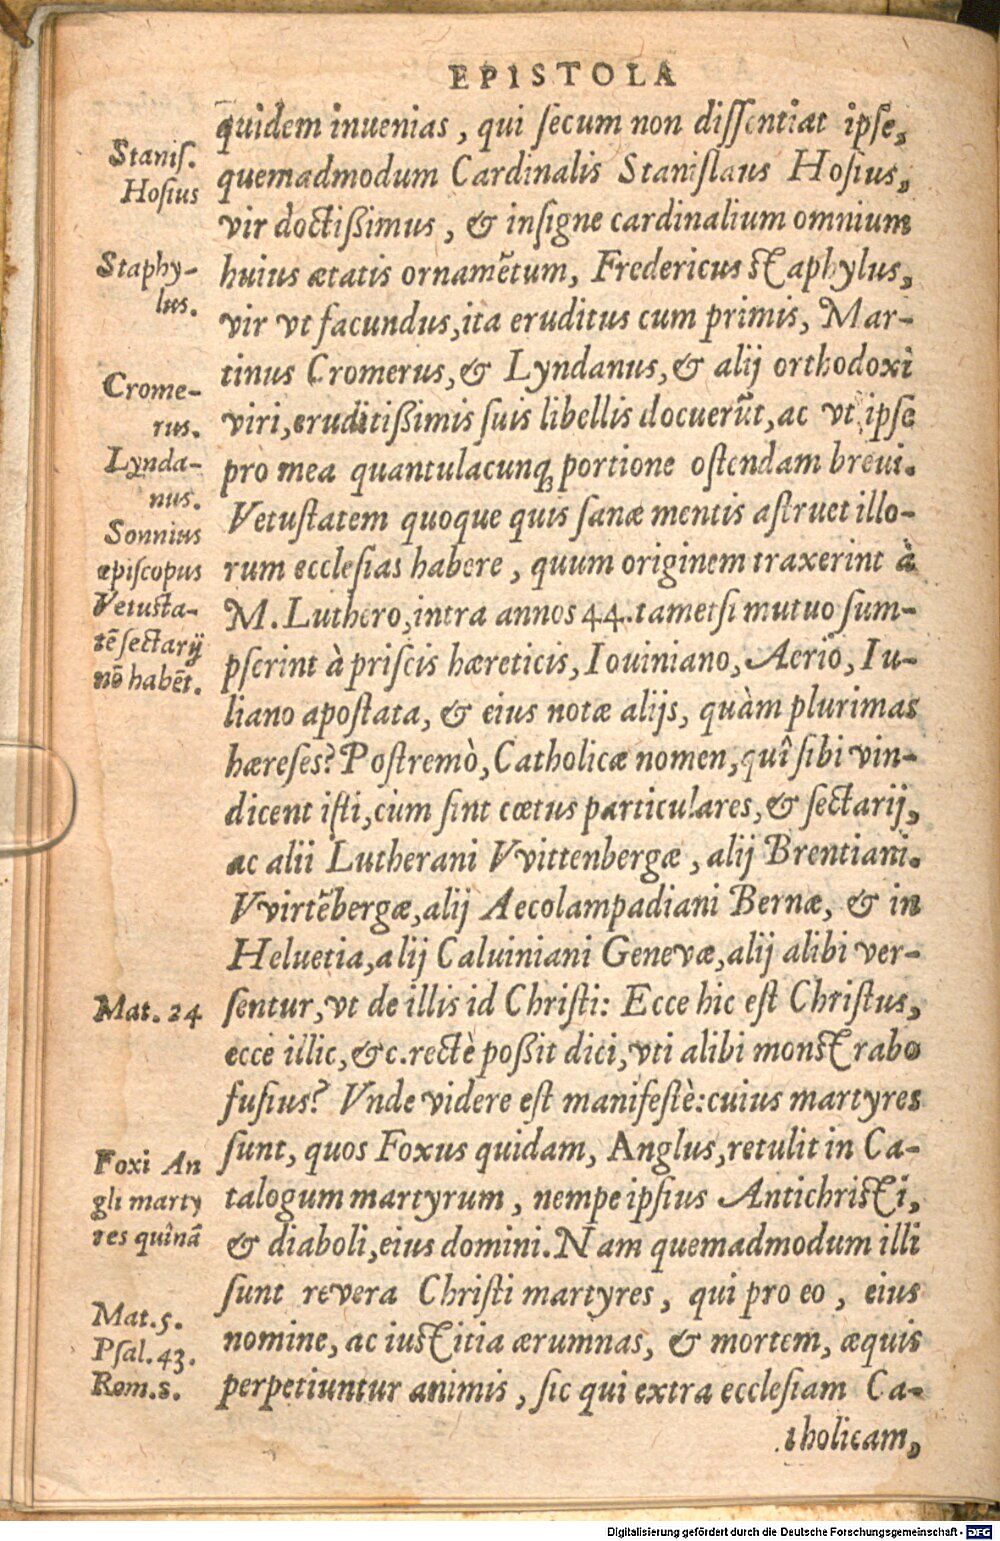 EPISTOLA
quidem inuenias, qui secum non dissentiat ipse,
quemadmodum Cardinalis Stanislaus Hosius,
vir doctißimus, & insigne cardinalium omnium
huius ætatis ornamētum, Fredericus Staphylus,
vir vt facundus, ita eruditus cum primis, Mar-
tinus Cromerus, & Lyndanus, & alij orthodoxi
viri, eruditißimis suis libellis docuerūt, ac vt ipse
pro mea quantulacunq; portione ostendam breui.
Vetustatem quoque quis sanæ mentis astruet illo-
rum ecclesias habere, quum originem traxerint à
M. Luthero, intra annos 44. tametsi mutuo sum-
pserint à priscis hæreticis, Iouiniano, Aërio, Iu-
liano apostata, & eius notæ alijs, quàm plurimas
hæreses? Postremò, Catholicæ nomen, quî sibi vin-
dicent isti, cùm sint cœtus particulares, & sectarij,
ac alii Lutherani Vvittenbergæ, alij Brentiani.
Vvirtēbergæ, alij Aecolampadiani Bernæ, & in
Heluetia, alij Caluiniani Genevæ, alij alibi ver-
sentur, vt de illis id Christi: Ecce hic est Christus,
ecce illic, &c. rectè poßit dici, vti alibi monstrabo
fusius? Vnde videre est manifestè: cuius martyres
sunt, quos Foxus quidam, Anglus, retulit in Ca-
talogum martyrum, nempe ipsius Antichristi,
& diaboli, eius domini. Nam quemadmodum illi
sunt revera Christi martyres, qui pro eo, eius
nomine, ac iustitia ærumnas, & mortem, æquis
perpetiuntur animis, sic qui extra ecclesiam Ca-
tholicam,
Stanis.
Hosius
Staphy-
lus.
Crome-
rus.
Lynda-
nus.
Sonnius
episcopus
Vetusta-
tē sectarij
nō habēt.
Mat. 24
Foxi An
gli marty
res quinā
Mat. 5.
Psal. 43.
Rom. 8.
Digitalisierung gefördert durch die Deutsche Forschungsgemeinschaft - DFG